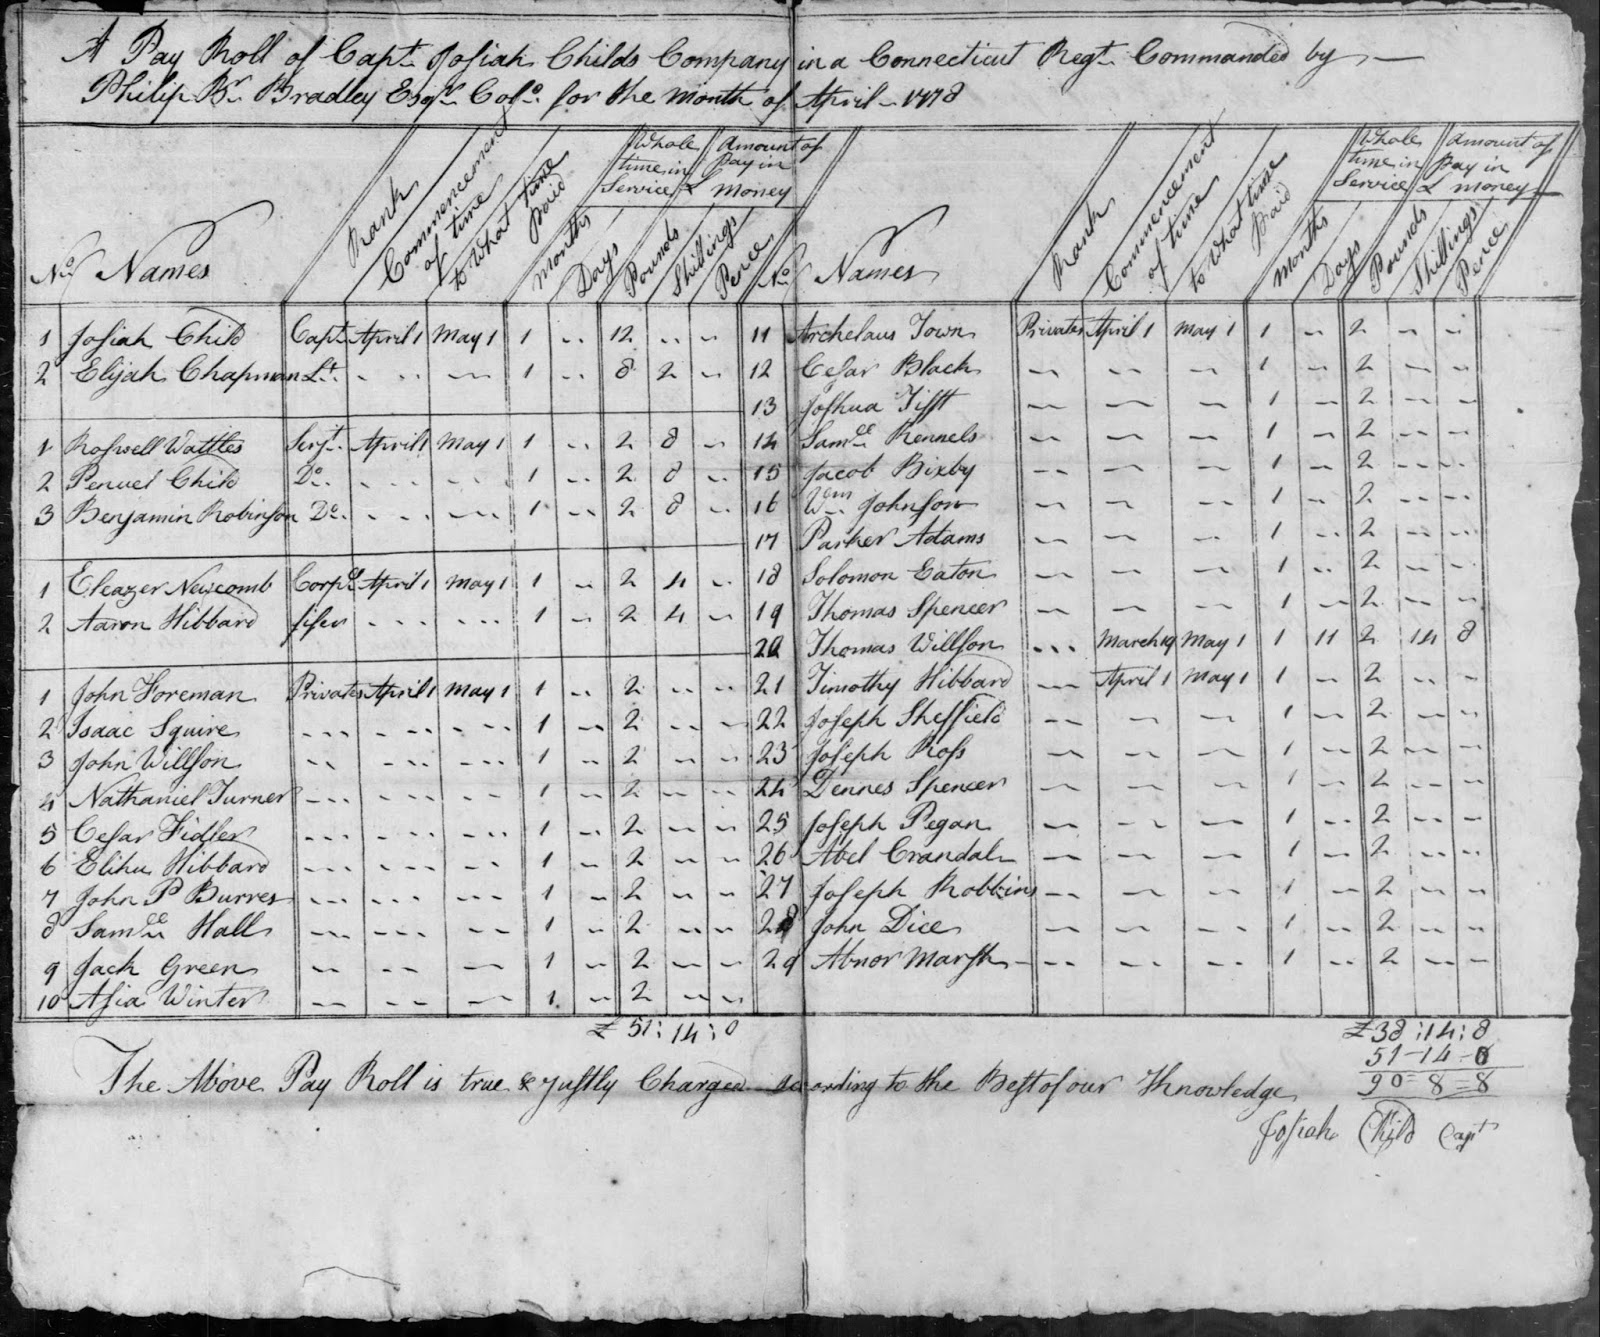 A Pay Roll of Capt. Josiah Childs Company in a Connecticut Regt. Commanded by
Philip Br. Bradley Esqr. Colo. for the Month of April - 1778
No. Names Rank Commencement of time to What time Paid Whole time in Service Months Days Amount of Pay in £ money Pounds Shillings Pence
1 Josiah Child Capt. April 1 May 1 1 - 12 - -
2 Elijah Chapman Lt. - - 1 - 8 2 -
1 Roswell Wattles Serjt. April 1 May 1 1 - 2 8 -
2 Penuel Child Do. - - 1 - 2 8 -
3 Benjamin Robinson Do. - - 1 - 2 8 -
1 Eleazer Newcomb Corpl April 1 May 1 1 - 2 4 -
2 Aaron Hibbard fifer - - 1 - 2 4 -
1 John Foreman Privates April 1 May 1 1 - 2 - -
2 Isaac Squire - - - 1 - 2 - -
3 John Willson - - - 1 - 2 - -
4 Nathaniel Turner - - - 1 - 2 - -
5 Cesar Fidler - - - 1 - 2 - -
6 Elihu Hibbard - - - 1 - 2 - -
7 John P Burres - - - 1 - 2 - -
8 Samll Hall - - - 1 - 2 - -
9 Jack Green - - - 1 - 2 - -
10 Asia Winter - - - 1 - 2 - -
£ 51 : 14 : 0
No. Names Rank Commencement of time to What time Paid Whole time in Service Months Days Amount of Pay in £ money Pounds Shillings Pence
11 Archelaus Town Privates April 1 May 1 1 - 2 - -
12 Cesar Black - - - 1 - 2 - -
13 Joshua Tifft - - - 1 - 2 - -
14 Samll Rennels - - - 1 - 2 - -
15 Jacob Bixby - - - 1 - 2 - -
16 Wm Johnson - - - 1 - 2 - -
17 Parker Adams - - - 1 - 2 - -
18 Solomon Eaton - - - 1 - 2 - -
19 Thomas Spencer - - - 1 - 2 - -
20 Thomas Willson - March 19 May 1 1 11 2 14 8
21 Timothy Hibbard - April 1 May 1 1 - 2 - -
22 Joseph Sheffield - - - 1 - 2 - -
23 Joseph Ross - - - 1 - 2 - -
24 Dennes Spencer - - - 1 - 2 - -
25 Joseph Pegan - - - 1 - 2 - -
26 Abel Crandal - - - 1 - 2 - -
27 Joseph Robbins - - - 1 - 2 - -
28 John Dice - - - 1 - 2 - -
29 Abnor Marsh - - - 1 - 2 - -
£ 38 : 14 : 8
51 - 14 - 0
90 = 8 = 8
The Above Pay Roll is true & Justly Charged according to the Best of our Knowledge
Josiah Child Capt